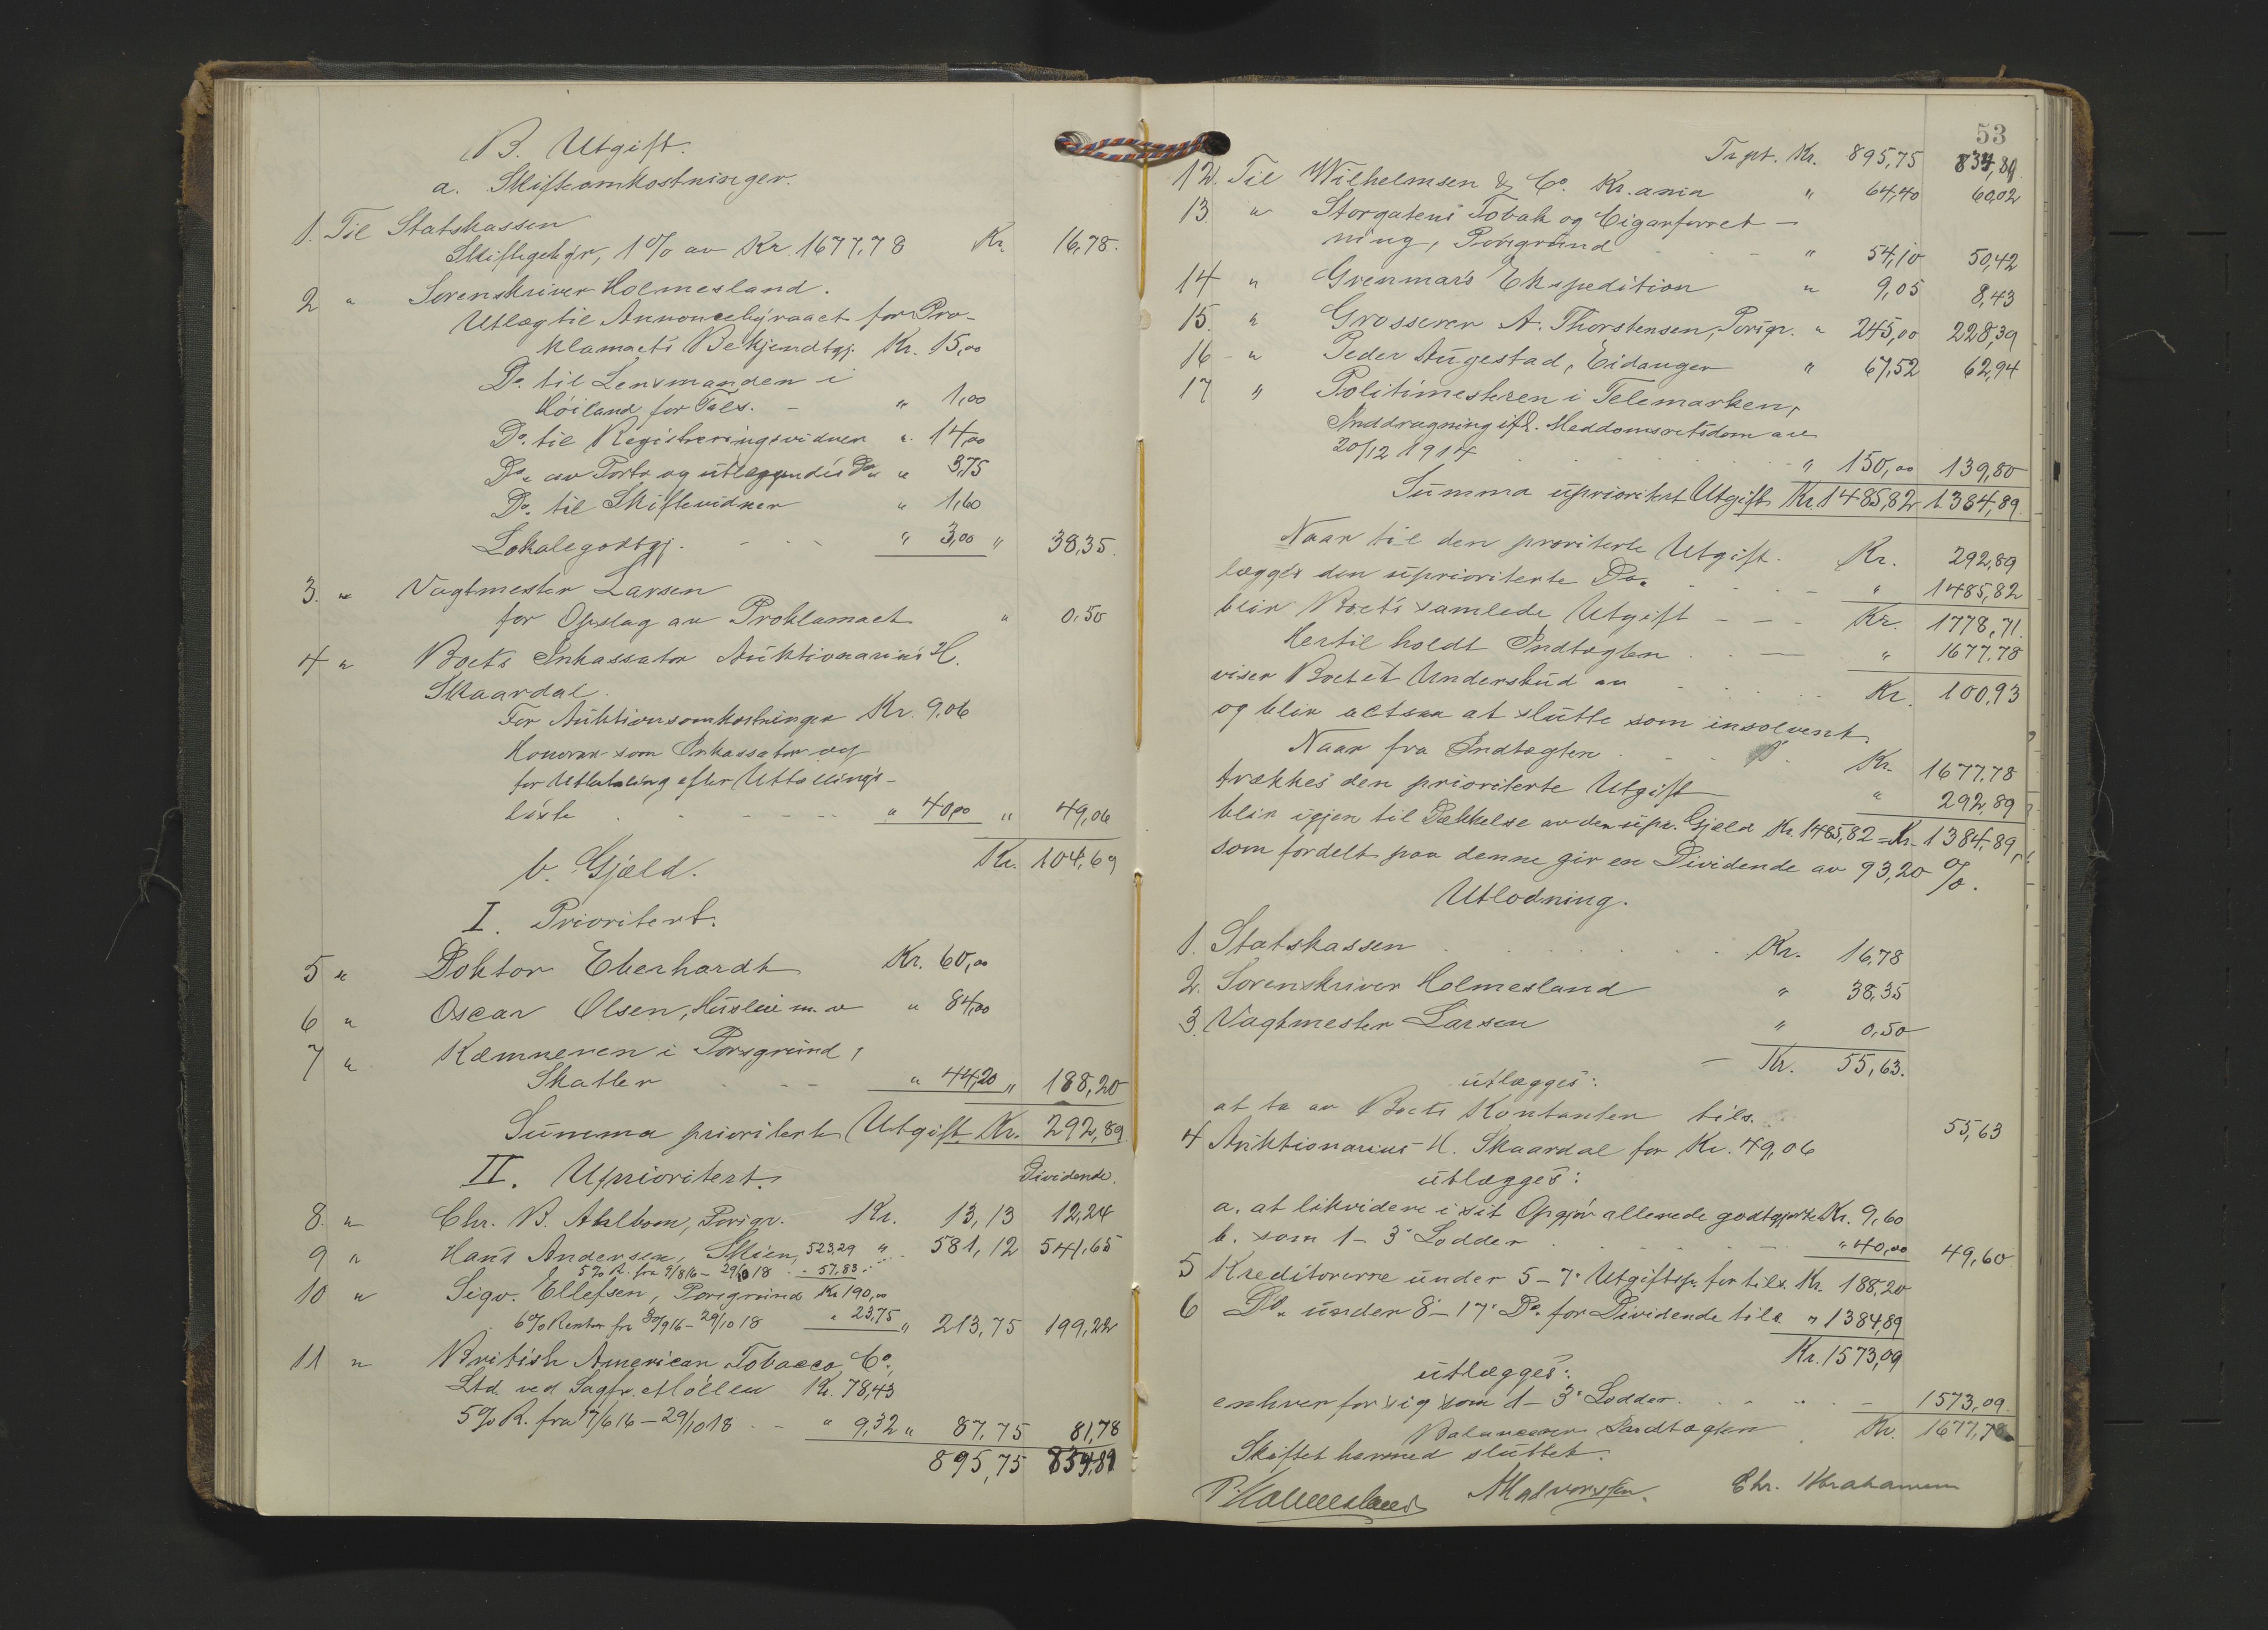 B. Utgift.
a. Skifteomkostninger.
1. Til Statskassen
Skiftegebyr, 1 % av Kr. 1677,78 Kr. 16,78.
2 " Sorenskriver Holmesland.
Utlæg til Annoncebyraaet for Pro-
klamaets Bekjendtgj. Kr. 15,00
Do. til Lensmanden i
Höiland for Tils. - " 1,00
Do. til Registreringsvidner " 14,00
Do. av Porto og utlæggendes Do. " 3,75
Do. til Skiftevidner " 1,60
Lokalegodtgj. - - - " 3,00 " 38,35.
3. " Vagtmester Larsen
for Opslag av Proklamaet " 0,50
4 " Boets Inkassator Auktionarius H.
Skaardal.
For Auktionsomkostninger Kr. 9,06
Honorar som Inkassator og
for Utbetaling efter Utlodnings-
liste " 40,00 " 49,06
Kr. 104,69
b. Gjæld.
I. Prioritert.
5 " Doktor Eberhardt Kr. 60,00
6 " Oscar Olsen, Husleie m. v " 84,00
7 " Kæmneren i Porsgrund,
Skatter " 44,20 " 188,20
Summa prioriterte Utgift Kr. 292,89
II. Uprioritert. Dividende.
8. " Chr. B. Ahlbom, Porsgr. Kr. 13,13 12,24
9 " Hans Andersen, Skien, 523,29 " 581,12 541,65
5 % R. fra 9/8 16 - 29/10 18 " 57,83
10 " Sigv. Ellefsen, Porsgrund Kr 190,00
6 % Renter fra 30/9 16 - 29/10 18 " 23,75 " 213,75 199,22
11 " British American Tobacco Co.,
Ltd. ved Sagfr. Möller Kr. 78,43
5 % R. fra 17/6 16 - 29/10 18 - " 9,32 " 87,75 81,78
895,75 834,89
53
Trpt. Kr. 895,75 834,89
12. Til Wilhelmsen & Co. Kr.ania " 64,40 60,02
13 " Storgatens Tobak og Cigarforret-
ning, Porsgrund " 54,10 50,42
14 " Grenmars Ekspedition " 9,05 8,43
15. " Grosserer A. Thorstensen, Porsgr. " 245,00 228,39
16 - " Peder Augestad, Eidanger " 67,52 62,94
17 " Politimesteren i Telemarken,
Inddragning ifl. Meddomsretsdom av
20/12 1914 " 150,00 139,80
Summa uprioritert Utgift Kr. 1485,82 1384,89.
Naar til den prioriterte Utgift. Kr. 292,89
lægges den uprioriterte Do. " 1485,82
blir Boets samlede Utgift - - - Kr. 1778,71.
Hertil holdt Indtægten " 1677,78
viser Boet et Underskud av Kr. 100,93
og blir altsaa at slutte som insolvent.
Naar fra Indtægten Kr. 1677,78
trækkes den prioriterte Utgift " 292,89
blir igjen til Dækkelse av den upr. Gjæld Kr. 1485,82 = Kr. 1384,89,
som fordelt paa denne gir en Dividende av 93,20 %.
Utlodning.
1. Statskassen Kr. 16,78
2. Sorenskriver Holmesland " 38,35
3. Vagtmester Larsen " 0,50
- Kr. 55,63.
utlægges:
at ta av Boets Kontanter tils. 55,63
4 Auktionarius H. Skaardal for Kr. 49,06
utlægges:
a. at likvidere i sit Opgjör allerede godtgjorte Kr. 9,60
b. som 1 - 3' Lodder " 40,00 49,60
5 Kreditorerne under 5 - 7' Utgiftsp. for tils. Kr. 188,20
6 Do. under 8' - 17' Do. for Dividende tils. " 1384,89
Kr. 1573,09
utlægges:
enhver for sig som 1 - 3' Lodder. 1573,09.
Balancerer Indtægten Kr. 1677,78
Skiftet hermed sluttet.
P. Holmesland A Halvorsen. Chr. Abrahamsen